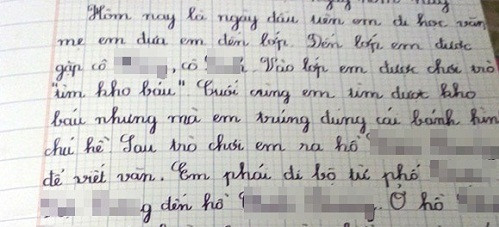 Hôm nay là ngày đầu tiên em đi học văn
mẹ em đưa em đến lớp. Đến lớp em được
gặp cô, cô. Vào lớp em được chơi trò
"tìm kho báu" Cuối cùng em tìm được kho
báu nhưng mà em trúng đúng cái bánh hình
chú hề Sau trò chơi em ra hồ
để viết văn. Em phải đi bộ từ phố
g đến hồ. Ở hồ